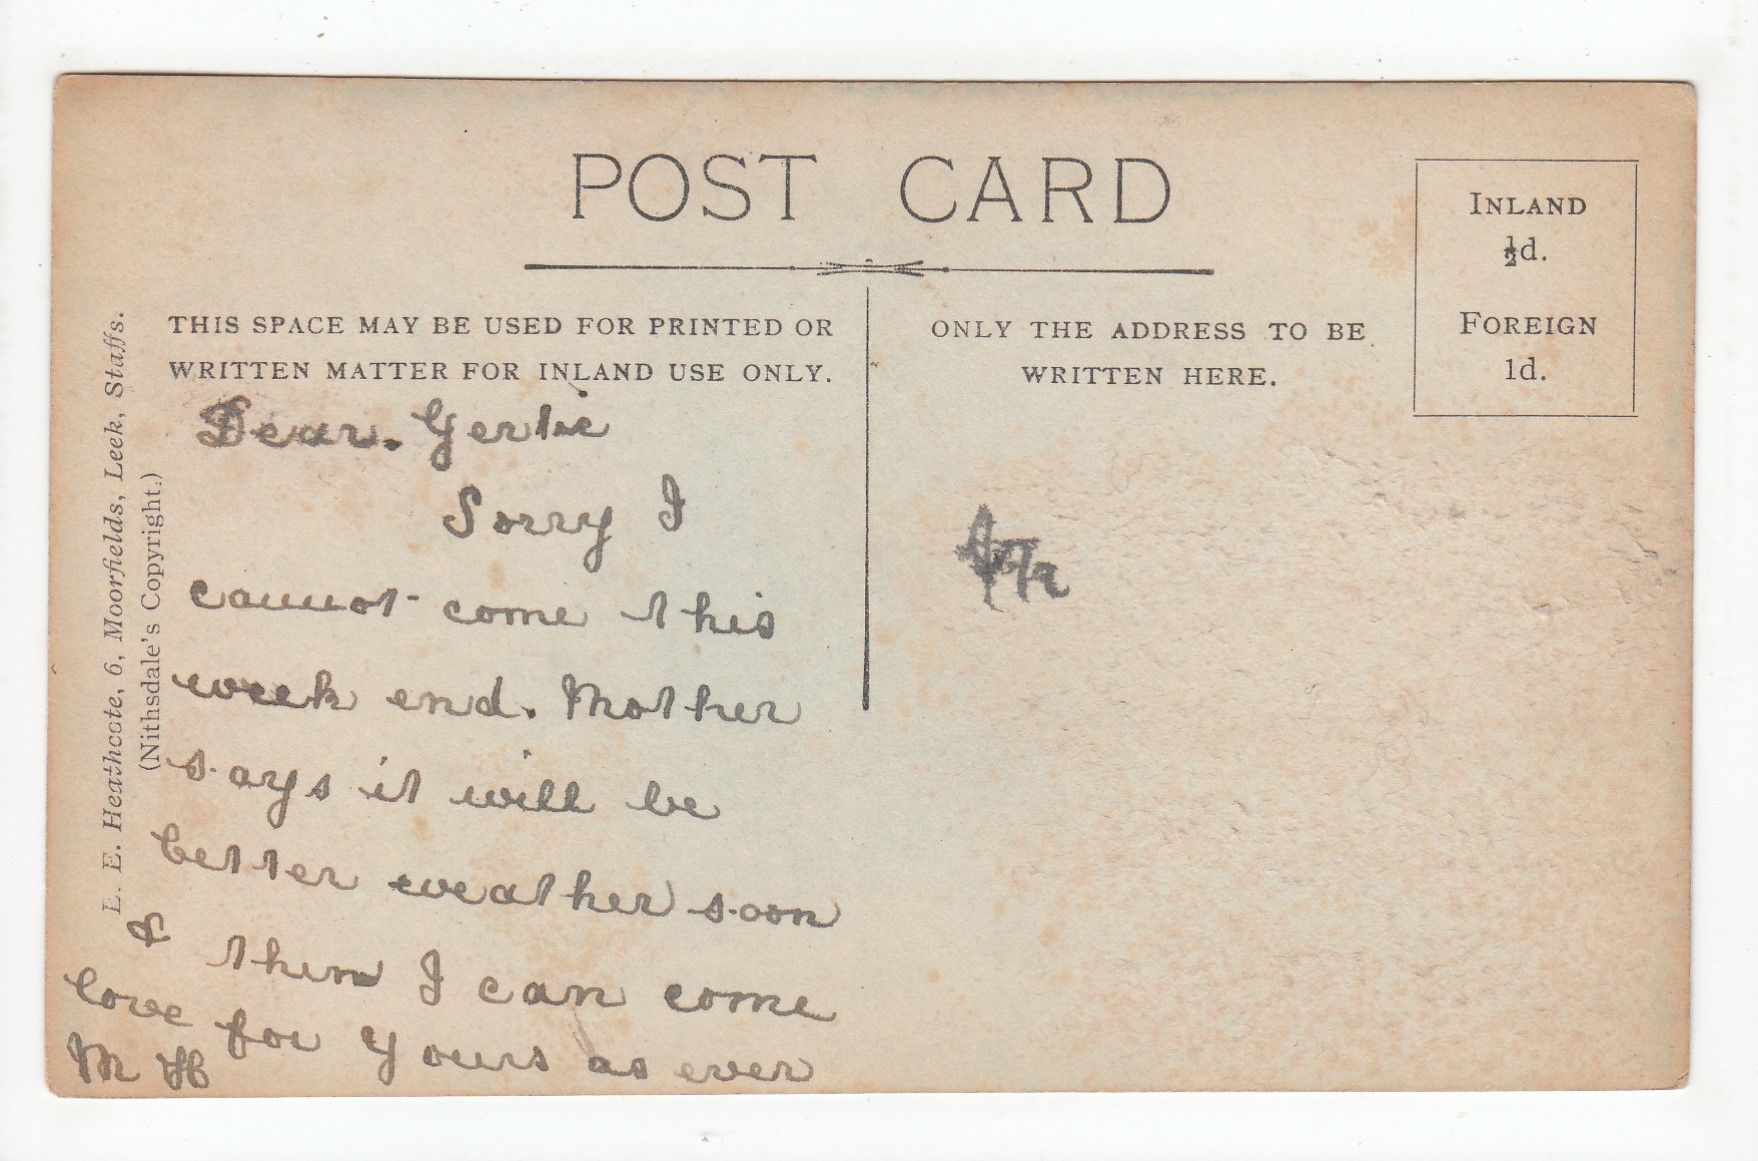 POST CARD
INLAND
½d.
FOREIGN
1d.
THIS SPACE MAY BE USED FOR PRINTED OR
WRITTEN MATTER FOR INLAND USE ONLY.
ONLY THE ADDRESS TO BE
WRITTEN HERE.
L. E. Heathcote, 6, Moorfields, Leek, Staffs.
(Nithsdale's Copyright.)
Dear. Gertie
Sorry I
cannot come this
week end. Mother
says it will be
better weather soon
& then I can come
love for Yours as ever
M H